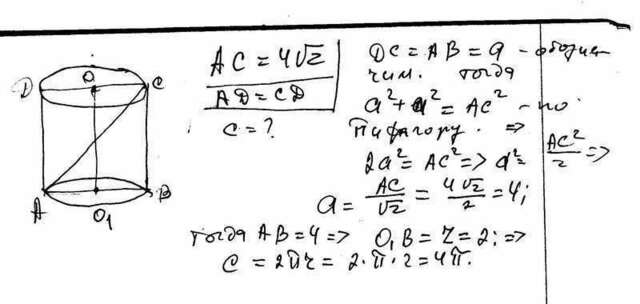 D O C
A O₁ B
AC = 4√2
AD = CD
C = ?
DC = AB = a – обозна
чим. тогда
a² + a² = AC² – по
Пифагору. ⇒
2a² = AC² ⇒ a² = AC²/2 ⇒
a = AC/√2 = 4√2/2 = 4;
тогда AB = 4 ⇒ O₁B = r = 2; ⇒
C = 2πr = 2·π·2 = 4π.